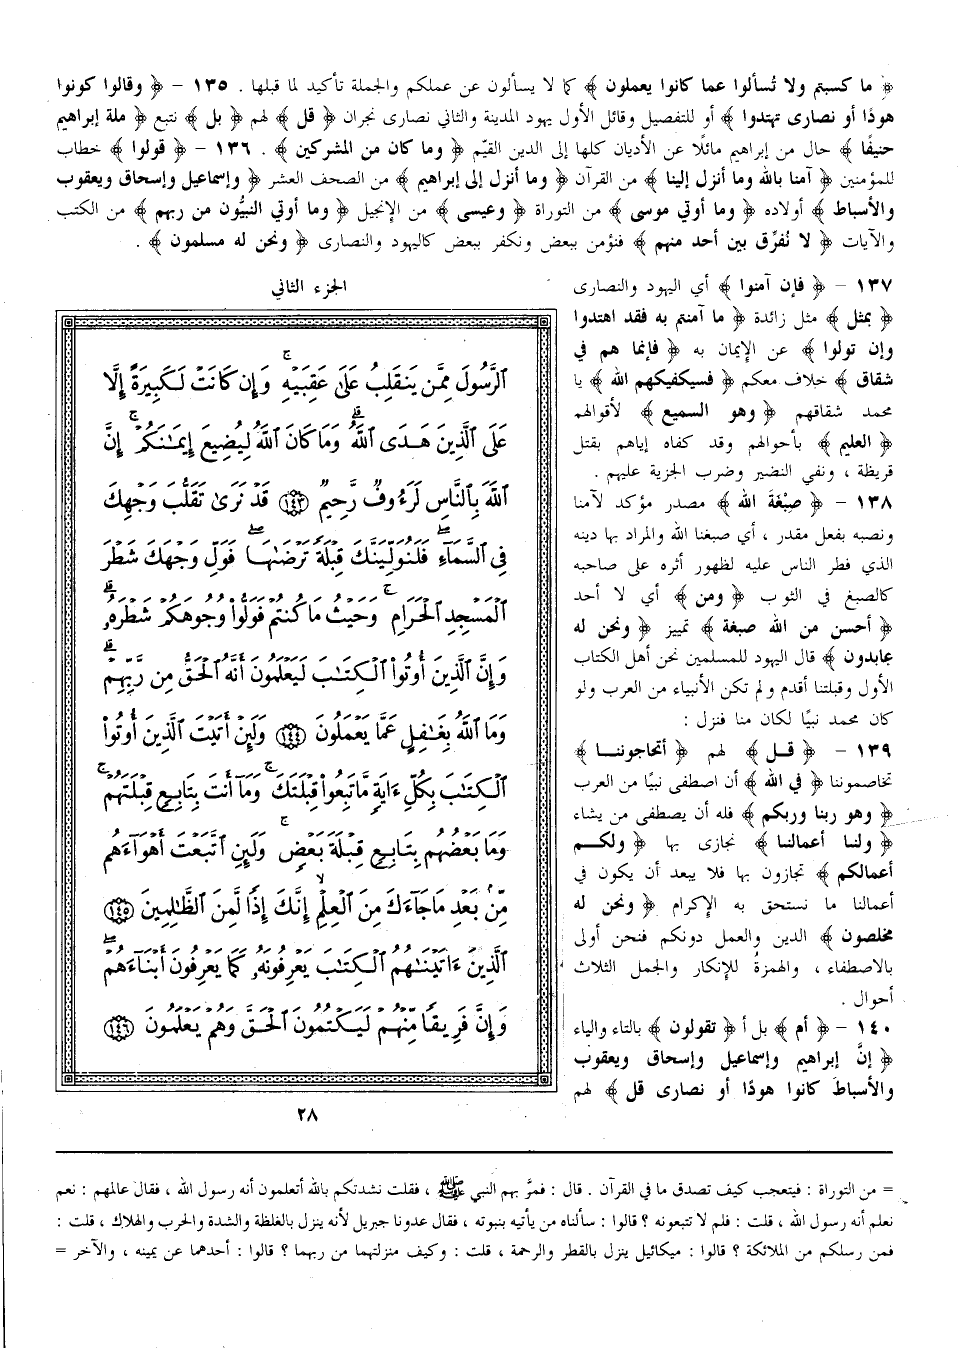 ﴿ ما كسبتم ولا تُسألوا عما كانوا يعملون ﴾ كما لا يسألون عن عملكم والجملة تأكيد لما قبلها . ١٣٥ – ﴿ وقالوا كونوا
هودًا أو نصارى تهتدوا ﴾ أو للتفصيل وقائل الأول يهود المدينة والثاني نصارى نجران ﴿ قل ﴾ لهم ﴿ بل ﴾ نتبع ﴿ ملة إبراهيم
حنيفًا ﴾ حال من إبراهيم مائلًا عن الأديان كلها إلى الدين القيّم ﴿ وما كان من المشركين ﴾ . ١٣٦ – ﴿ قولوا ﴾ خطاب
للمؤمنين ﴿ آمنا بالله وما أنزل إلينا ﴾ من القرآن ﴿ وما أنزل إلى إبراهيم ﴾ من الصحف العشر ﴿ وإسماعيل وإسحاق ويعقوب
والأسباط ﴾ أولاده ﴿ وما أوتي موسى ﴾ من التوراة ﴿ وعيسى ﴾ من الإنجيل ﴿ وما أوتي النبيُّون من ربهم ﴾ من الكتب
والآيات ﴿ لا نُفرِّق بين أحد منهم ﴾ فنؤمن ببعض ونكفر ببعض كاليهود والنصارى ﴿ ونحن له مسلمون ﴾ .
١٣٧ – ﴿ فإن آمنوا ﴾ أي اليهود والنصارى
﴿ بمثل ﴾ مثل زائدة ﴿ ما آمنتم به فقد اهتدوا
وإن تولوا ﴾ عن الإيمان به ﴿ فإنما هم في
شقاق ﴾ خلاف معكم ﴿ فسيكفيكهم الله ﴾ يا
محمد شقاقهم ﴿ وهو السميع ﴾ لأقوالهم
﴿ العليم ﴾ بأحوالهم وقد كفاه إياهم بقتل
قريظة ، ونفي النضير وضرب الجزية عليهم .
١٣٨ – ﴿ صِبْغَةَ الله ﴾ مصدر مؤكد لآمنا
ونصبه بفعل مقدر ، أي صبغنا الله والمراد بها دينه
الذي فطر الناس عليه لظهور أثره على صاحبه
كالصبغ في الثوب ﴿ ومن ﴾ أي لا أحد
﴿ أحسن من الله صبغة ﴾ تمييز ﴿ ونحن له
عابدون ﴾ قال اليهود للمسلمين نحن أهل الكتاب
الأول وقبلتنا أقدم ولم تكن الأنبياء من العرب ولو
كان محمد نبيًا لكان منا فنزل :
١٣٩ – ﴿ قل ﴾ لهم ﴿ أتحاجوننا ﴾
تخاصموننا ﴿ في الله ﴾ أن اصطفى نبيًا من العرب
﴿ وهو ربنا وربكم ﴾ فله أن يصطفي من يشاء
﴿ ولنا أعمالنا ﴾ نجازى بها ﴿ ولكم
أعمالكم ﴾ تجازون بها فلا يبعد أن يكون في
أعمالنا ما نستحق به الإكرام ﴿ ونحن له
مخلصون ﴾ الدين والعمل دونكم فنحن أولى
بالاصطفاء ، والهمزةُ للإنكار والجمل الثلاث
أحوال .
١٤٠ – ﴿ أم ﴾ بل أ ﴿ تقولون ﴾ بالتاء والياء
﴿ إنَّ إبراهيم وإسماعيل وإسحاق ويعقوب
والأسباطَ كانوا هودًا أو نصارى قل ﴾ لهم
الجزء الثاني
ٱلرَّسُولَ مِمَّن يَنقَلِبُ عَلَىٰ عَقِبَيْهِ ۚ وَإِن كَانَتْ لَكَبِيرَةً إِلَّا
عَلَى ٱلَّذِينَ هَدَى ٱللَّهُ ۗ وَمَا كَانَ ٱللَّهُ لِيُضِيعَ إِيمَٰنَكُمْ ۚ إِنَّ
ٱللَّهَ بِٱلنَّاسِ لَرَءُوفٌ رَّحِيمٌ ﴿١٤٣﴾ قَدْ نَرَىٰ تَقَلُّبَ وَجْهِكَ
فِى ٱلسَّمَآءِ ۖ فَلَنُوَلِّيَنَّكَ قِبْلَةً تَرْضَىٰهَا ۖ فَوَلِّ وَجْهَكَ شَطْرَ
ٱلْمَسْجِدِ ٱلْحَرَامِ ۚ وَحَيْثُ مَا كُنتُمْ فَوَلُّوا۟ وُجُوهَكُمْ شَطْرَهُۥ ۗ
وَإِنَّ ٱلَّذِينَ أُوتُوا۟ ٱلْكِتَٰبَ لَيَعْلَمُونَ أَنَّهُ ٱلْحَقُّ مِن رَّبِّهِمْ ۗ
وَمَا ٱللَّهُ بِغَٰفِلٍ عَمَّا يَعْمَلُونَ ﴿١٤٤﴾ وَلَئِنْ أَتَيْتَ ٱلَّذِينَ أُوتُوا۟
ٱلْكِتَٰبَ بِكُلِّ ءَايَةٍ مَّا تَبِعُوا۟ قِبْلَتَكَ ۚ وَمَآ أَنتَ بِتَابِعٍ قِبْلَتَهُمْ ۚ
وَمَا بَعْضُهُم بِتَابِعٍ قِبْلَةَ بَعْضٍ ۚ وَلَئِنِ ٱتَّبَعْتَ أَهْوَآءَهُم
مِّنۢ بَعْدِ مَا جَآءَكَ مِنَ ٱلْعِلْمِ ۙ إِنَّكَ إِذًا لَّمِنَ ٱلظَّٰلِمِينَ ﴿١٤٥﴾
ٱلَّذِينَ ءَاتَيْنَٰهُمُ ٱلْكِتَٰبَ يَعْرِفُونَهُۥ كَمَا يَعْرِفُونَ أَبْنَآءَهُمْ ۖ
وَإِنَّ فَرِيقًا مِّنْهُمْ لَيَكْتُمُونَ ٱلْحَقَّ وَهُمْ يَعْلَمُونَ ﴿١٤٦﴾
٢٨
= من التوراة : فيتعجب كيف تصدق ما في القرآن . قال : فمرَّ بهم النبي ﷺ ، فقلت نشدتكم بالله أتعلمون أنه رسول الله ، فقال عالمهم : نعم
نعلم أنه رسول الله ، قلت : فلم لا تتبعونه ؟ قالوا : سألناه من يأتيه بنبوته ، فقال عدونا جبريل لأنه ينزل بالغلظة والشدة والحرب والهلاك ، قلت :
فمن رسلكم من الملائكة ؟ قالوا : ميكائيل ينزل بالقطر والرحمة ، قلت : وكيف منزلتهما من ربهما ؟ قالوا : أحدهما عن يمينه ، والآخر =